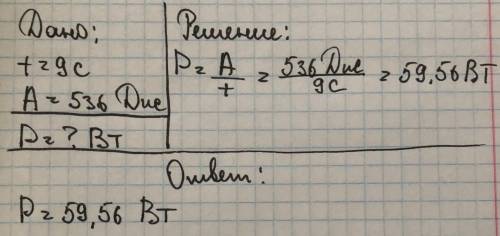 Дано:
t = 9 с
A = 536 Дже
P = ? Вт
Решение:
P = A/t = 536 Дже/9с = 59,56 Вт
Ответ:
P = 59,56 Вт